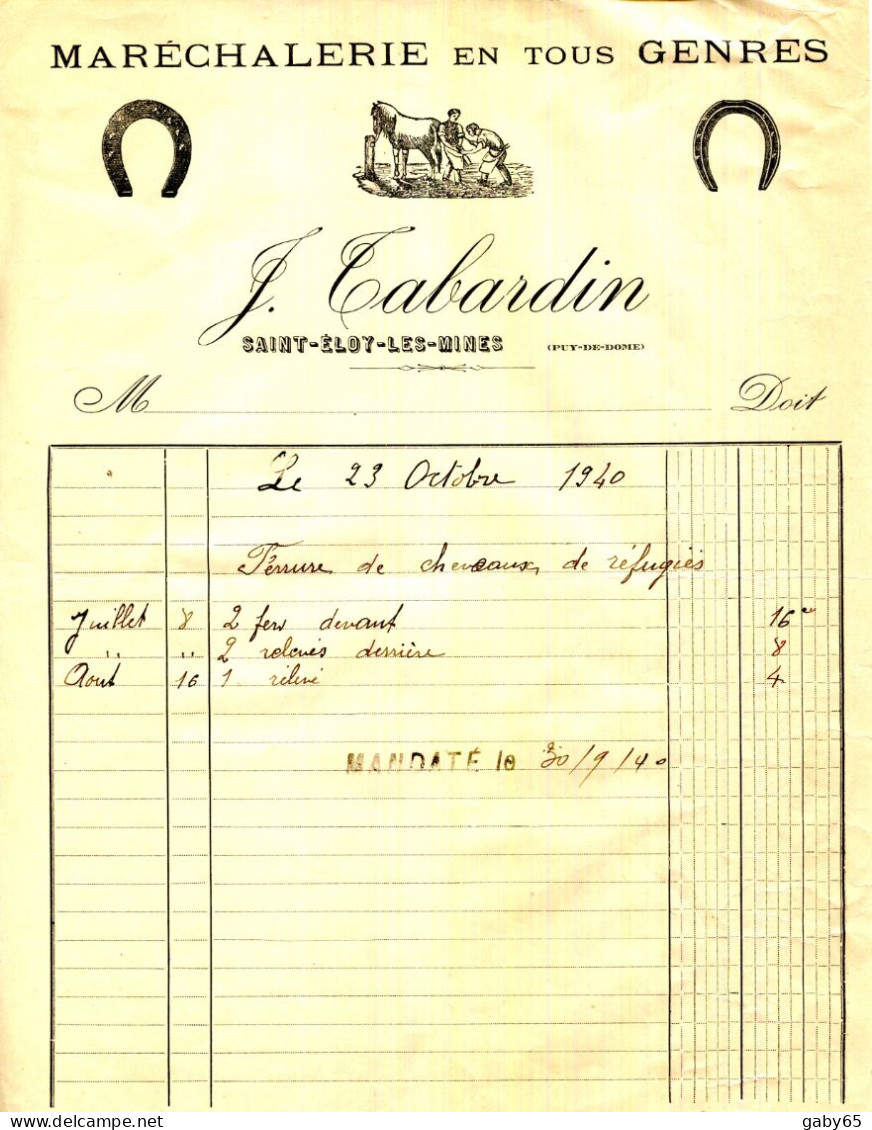 MARÉCHALERIE EN TOUS GENRES
J. Tabardin
SAINT-ÉLOY-LES-MINES (PUY-DE-DOME)
M Doit
Le 23 Octobre 1940
Férrure de cheveaux de réfugiés
Juillet 8 2 fers devant 16
" " 2 relevés derrière 8
Aout 16 1 rélevé 4
MANDATÉ le 30/9/40
delcampe.net
gaby65